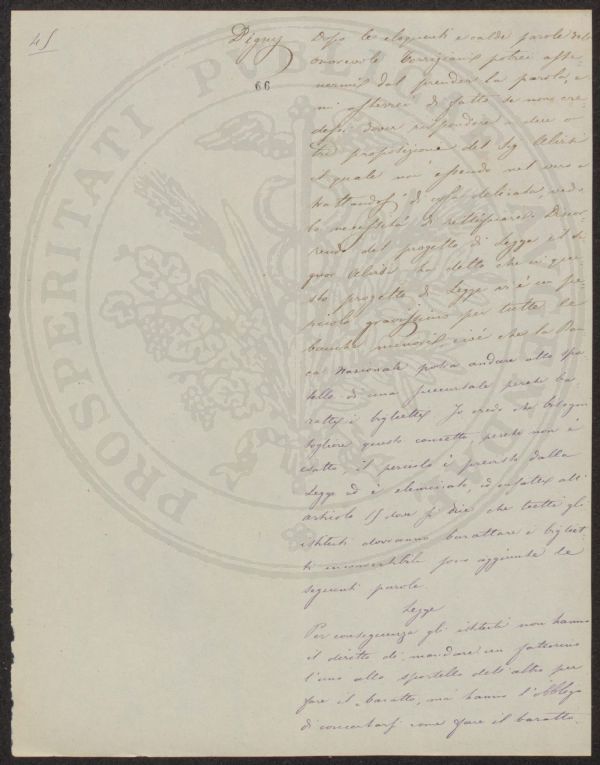 45
Digny
66
Dopo le eloquenti e calde parole dell
onorevole Corrigiani potrei aste
nermi dal prender la parola, e
mi asterrei di fatto se non cre
dessi dover rispondere a due o
tre proposizione del Sig Alvisi
il quale non essendo nel vero e
trattandosi di cosa delicata, vedo
la necessità di rettificare. Discor
rendo del progetto di Legge il Si
gnor Alvisi ha detto che in que
sto progetto di Legge vi è un pe
ricolo gravissimo per tutte le
banche minori, cioè che la Ban
ca Nazionale potrà andare allo spor
tello di una succursale perché ba
ratti i biglietti. Io credo che bisogni
togliere questo concetto, perché non è
esatto, il pericolo è previsto dalla
Legge ed è eliminato, ed infatti all'
articolo 15 dove si dice che tutti gli
istituti dovranno barattare i bigliet
ti inconvertibili sono aggiunte le
seguenti parole.
Legge
Per conseguenza gli istituti non hanno
il diritto di mandare un fattorino
l'uno allo sportello dell'altro per
fare il baratto, ma hanno l'obbligo
di concertarsi come fare il baratto.
PROSPERITATI PUBLICAE